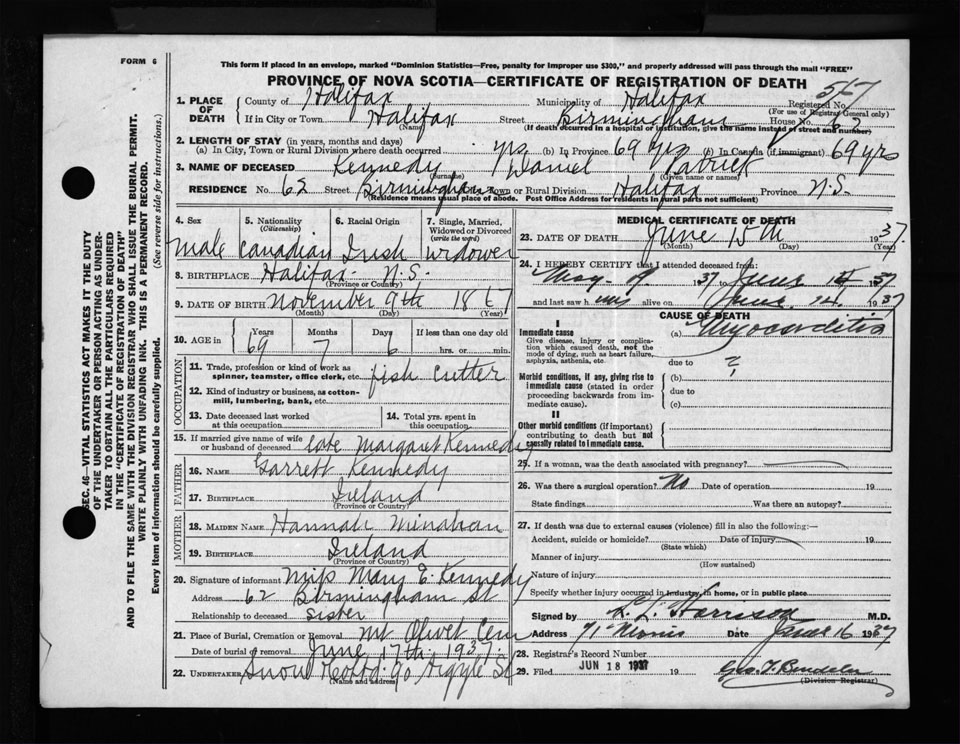 FORM 6
This form if placed in an envelope, marked "Dominion Statistics—Free, penalty for improper use $300," and properly addressed will pass through the mail "FREE"
PROVINCE OF NOVA SCOTIA—CERTIFICATE OF REGISTRATION OF DEATH
567
1. PLACE OF DEATH County of Halifax Municipality of Halifax Registered No.
(For use of Registrar General only)
If in City or Town Halifax Street Birmingham House No. 62
(Name) (If death occurred in a hospital or institution, give the name instead of street and number)
2. LENGTH OF STAY (in years, months and days)
(a) In City, Town or Rural Division where death occurred yrs (b) In Province 69 yrs (c) In Canada (if immigrant) 69 yrs
3. NAME OF DECEASED Kennedy Daniel Patrick
(Surname) (Given name or names)
RESIDENCE No. 62 Street Birmingham Town or Rural Division Halifax Province N.S.
(Residence means usual place of abode. Post Office Address for residents in rural parts not sufficient)
SEC. 46—VITAL STATISTICS ACT MAKES IT THE DUTY
OF THE UNDERTAKER OR PERSON ACTING AS UNDER-
TAKER TO OBTAIN ALL THE PARTICULARS REQUIRED
IN THE "CERTIFICATE OF REGISTRATION OF DEATH"
AND TO FILE THE SAME WITH THE DIVISION REGISTRAR WHO SHALL ISSUE THE BURIAL PERMIT.
WRITE PLAINLY WITH UNFADING INK. THIS IS A PERMANENT RECORD.
Every item of information should be carefully supplied. (See reverse side for instructions.)
4. Sex 5. Nationality (Citizenship) 6. Racial Origin 7. Single, Married, Widowed or Divorced (write the word)
Male Canadian Irish Widower
8. BIRTHPLACE Halifax - N.S.
(Province or Country)
9. DATE OF BIRTH November 9th 1867
(Month) (Day) (Year)
10. AGE in Years 69 Months 7 Days 6 If less than one day old hrs. or min.
OCCUPATION
11. Trade, profession or kind of work as spinner, teamster, office clerk, etc. fish cutter
12. Kind of industry or business, as cotton-mill, lumbering, bank, etc.
13. Date deceased last worked at this occupation
14. Total yrs. spent in this occupation
15. If married give name of wife or husband of deceased late Margaret Kennedy
FATHER
16. NAME Garrett Kennedy
17. BIRTHPLACE Ireland
(Province or Country)
MOTHER
18. MAIDEN NAME Hannah Minahan
19. BIRTHPLACE Ireland
(Province or Country)
20. Signature of informant Miss Mary E. Kennedy
Address 62 Birmingham St
Relationship to deceased sister
21. Place of Burial, Cremation or Removal Mt Olivet Cem
Date of burial or removal June 17th 1937.
22. UNDERTAKER Snow 90 Argyle St
(Name and address)
MEDICAL CERTIFICATE OF DEATH
23. DATE OF DEATH June 15th 1937.
(Month) (Day) (Year)
24. I HEREBY CERTIFY that I attended deceased from:
May 1937 to June 1937
and last saw him alive on June 14. 1937
CAUSE OF DEATH
I
Immediate cause (a) Myocarditis
Give disease, injury or complication which caused death, not the mode of dying, such as heart failure, asphyxia, asthenia, etc.
due to ?
Morbid conditions, if any, giving rise to immediate cause (stated in order proceeding backwards from immediate cause). (b)
due to
(c)
II
Other morbid conditions (if important) contributing to death but not causally related to immediate cause.
25. If a woman, was the death associated with pregnancy?
26. Was there a surgical operation? No Date of operation 19
State findings Was there an autopsy?
27. If death was due to external causes (violence) fill in also the following:—
Accident, suicide or homicide? Date of injury 19
(State which)
Manner of injury
(How sustained)
Nature of injury
Specify whether injury occurred in industry, in home, or in public place
Signed by Harrison M.D.
Address 71 Morris Date June 16 1937
28. Registrar's Record Number
29. Filed JUN 18 1937 19
(Division Registrar)